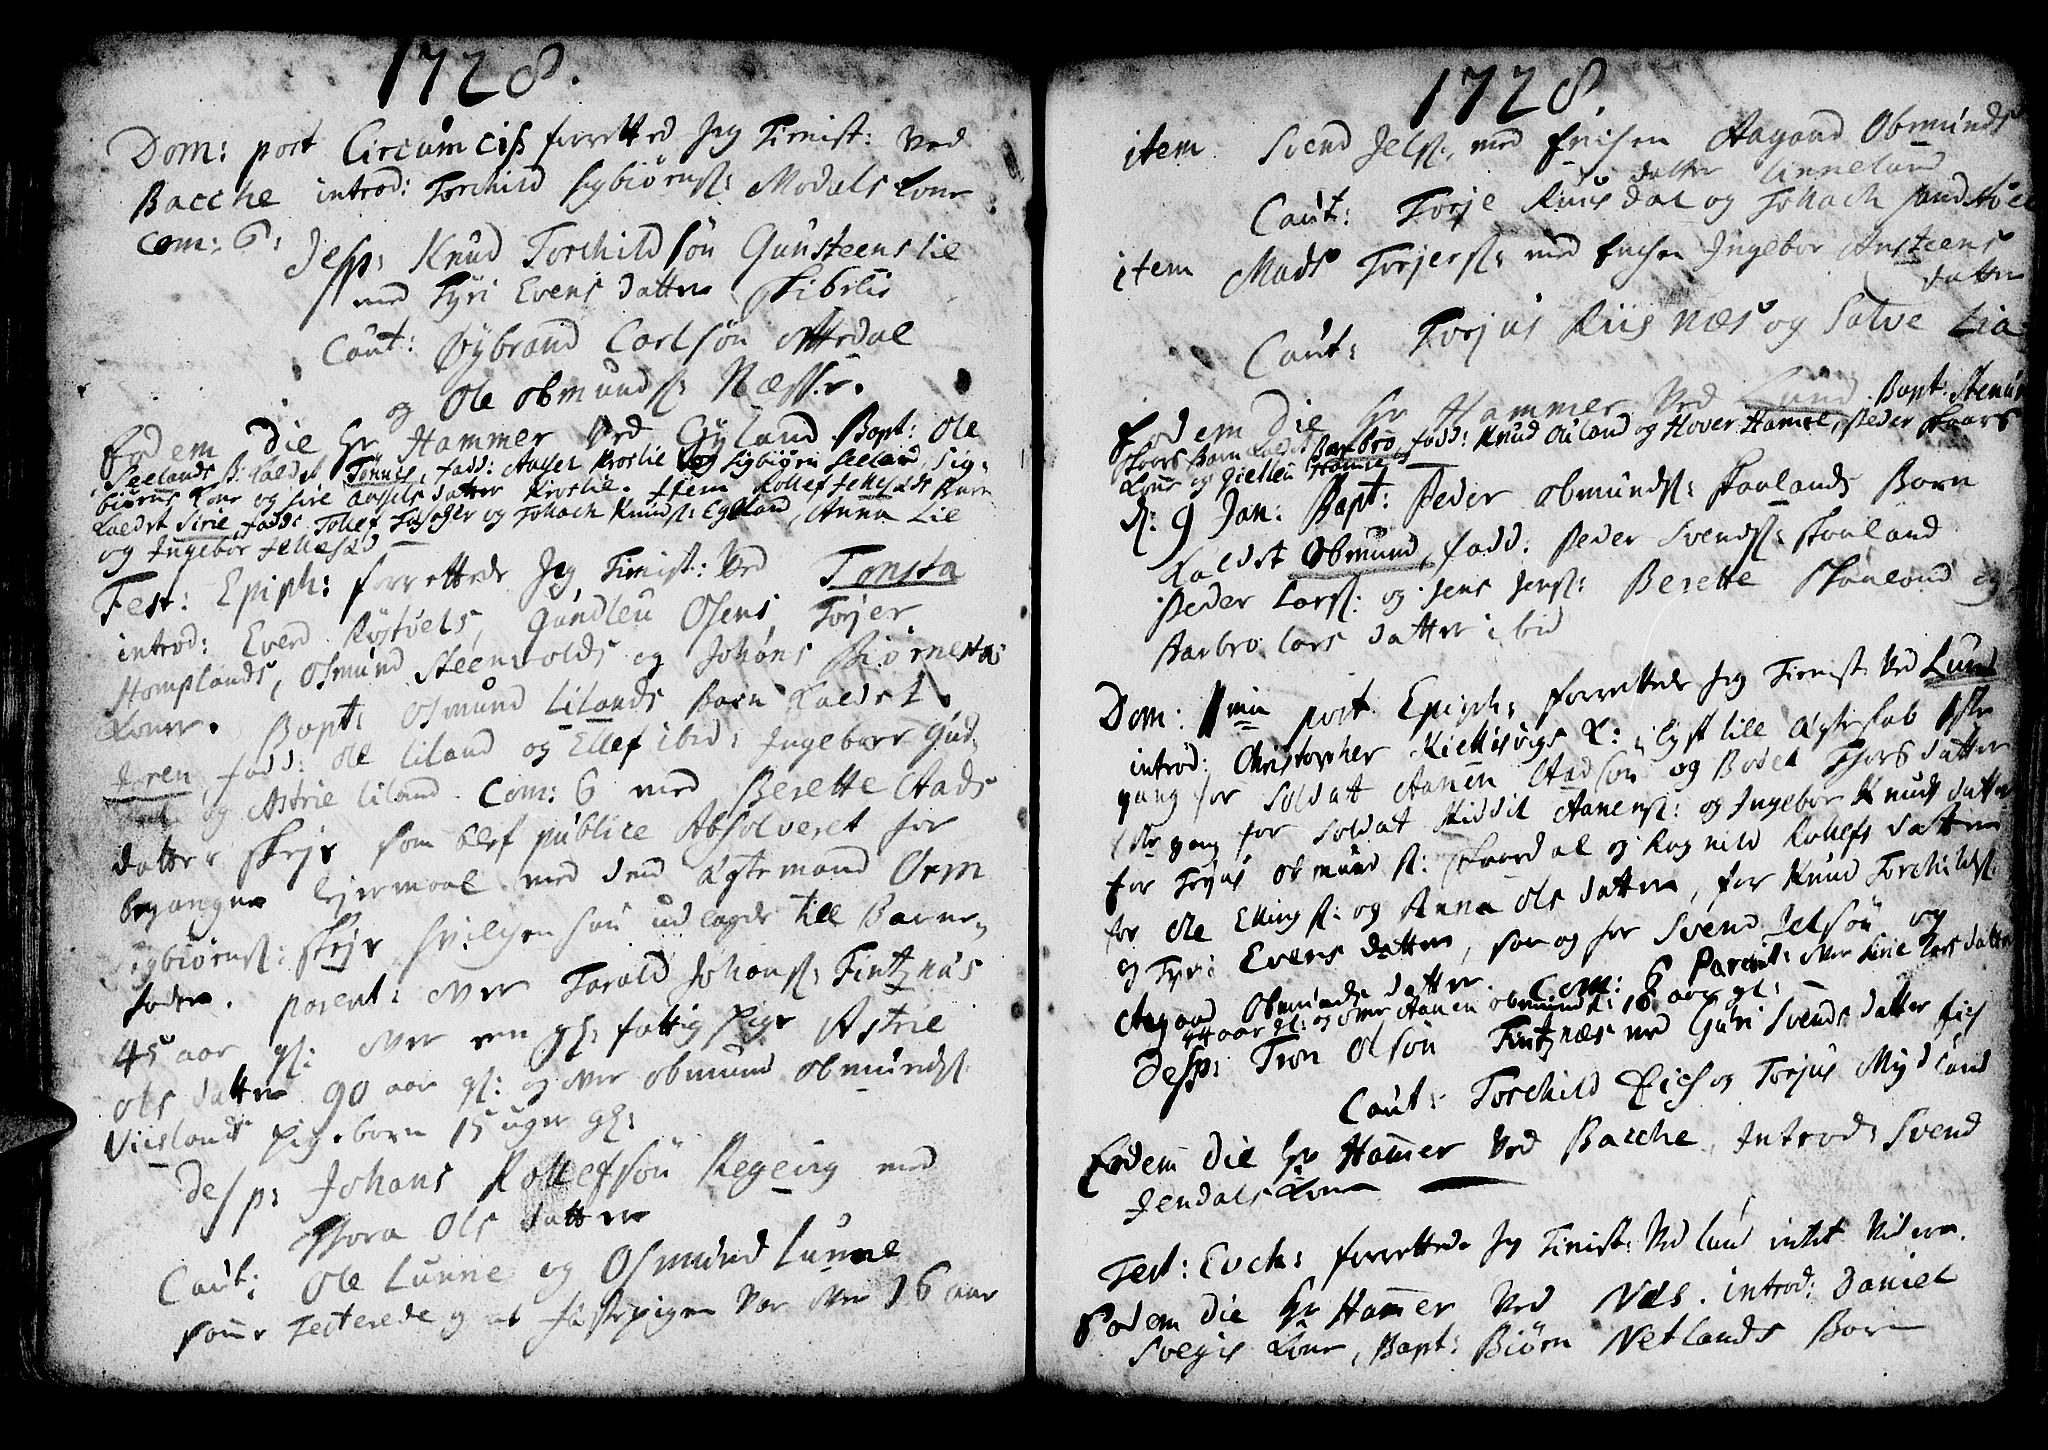 1728.
Dom: post Circumciß forretted Jeg Tienist: Ved
Bacche introd: Torchild Sigbiørnß: Modals Kone
Com: 6:
Desp: Knud Torchildsøn Gunsteenslie
med Tyri Evens datter
Caut: Øybrand Carlsøn
og Ole Obmundß: Næsset.
Eodem Die Hr Hammer Ved Gyland Bapt: Ole
Seelands B: kaldet Tønnes, fadd: Aasel Kroslie og Sigbiørn Seeland, Sig-
biørns Kone og Sirie Aasels datter Kroslie. Item Rollef
kaldet Sirie, fadd: Tollef og Tohach Knudß: Egeland, Anna Lie
og Ingebor
Fest: Epiph: forrettede Jeg Tienist: Ved Tonsta
introd: Everd Røstøels, Gundleu Osens, Torjer
Homplands, Osmund Steenvolds og Johans
Koner. Bapt: Osmund Lilands Barn kaldet
fadd: Ole Liland og Ellef ibid: Ingeborr Gud-
og Astrie Liland. Com: 6 med Berette Aads
datter som blef publice Absolveret for
begangne lejermaal med dend ægtemand Orm
Sigbiørnß: hvilchen hun udlagde till Barne-
fader. parent: over Tarald Johanß: Fintznæs
45 aar gl: over een gl: fattig pige Astrie
Ols datter 90 aar gl: og over Obmund Obmundß:
Viislands pigebarn 15 uger gl:
Desp: Johans Rollefsøn Regevig med
Thora Ols datter
Caut: Ole Lunne og Osmund Lunne
som testerede at pigen Var over 16 aar
1728.
item Svend Jelß: med Enchen Aagaad Obmunds
datter Linneland
Caut: Torje Riisdal og Tohach
item Mads Torjerß: med Enchen Ingebor Ansteens
datter
Caut: Torjus Riisnæs og Salve Lia
Eodem Die Hr Hammer Ved Lund. Bapt: Stenar
Barn kaldet Barbro, fadd: Knud Ouland og Hover Hamre, Peder
Kone og
d: 9 Jan: Bapt: Peder Obmundß: Skaalands Barn
kaldet Obmund, fadd: Peder Svendß: Skaaland
Peder Larß: og Jens Jenß: Berette Skaaland og
Barbro Lars datter ibid
Dom: 1ma post Epiph: forrettede Jeg Tienist Ved Lund
introd: Christopher K: lyst till ægteskab
gang for Soldat Aanen Aadsøn og Bodel datter
gang for Soldat Aanenß: og Ingebor Knuds datter
for Terjus Obmundß: og Ragnild Rollefs datter
for Ole Ellingß: og Anna Ols datter, for Knud Torchildß:
og Tyri Evens datter, saa og for Svend Jelsøn og
Aagaad Obmunds datter. Com: 6 Parent: over Sirie Lars datter
aar gl: og over Aanen Obmundß: 18 aar gl:
Desp: Tron Olsøn Fintznæs med Guri Svends datter Eich
Caut: Torchild Eich og Torjus Mydland
Eodem Die Hr Hammer Ved Bacche. Introd: Svend
Jendals Kone
Fest: Evch: forrettede Jeg Tienist: Ved Lund intet Videre.
Eodem Die Hr Hammer Ved Næs. introd: Daniel
Svegis Kone, Bapt: Biørn Netlands Barn